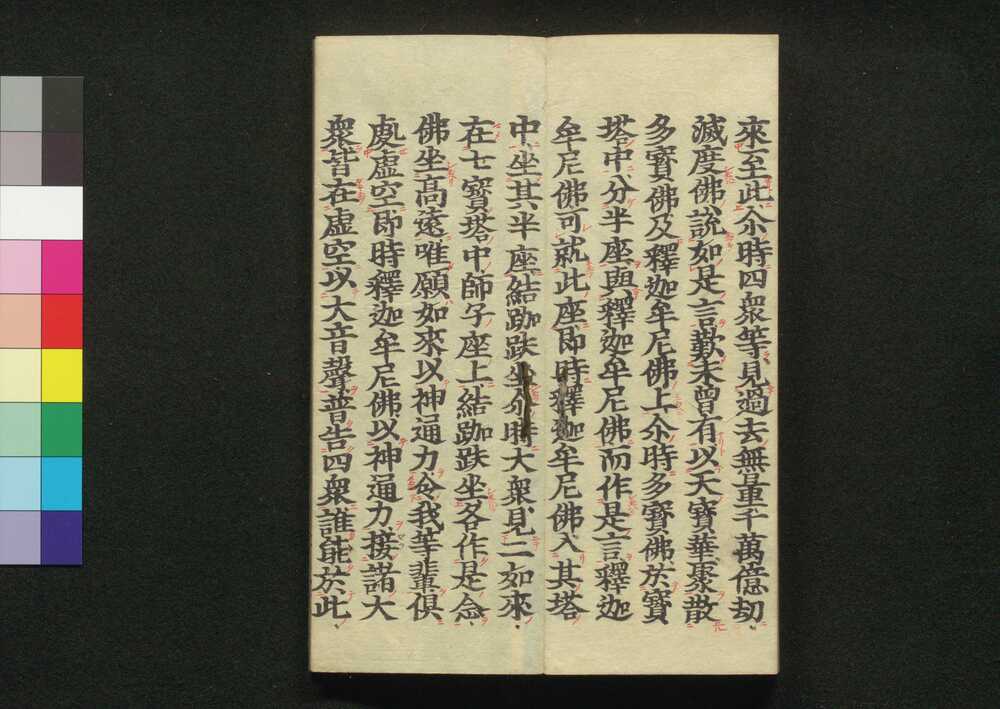 來至此尒時四衆等見過去無量千萬億劫
滅度佛說如是言歎未曾有以天寶華聚散
多寶佛及釋迦牟尼佛上尒時多寶佛於寶
塔中分半座與釋迦牟尼佛而作是言釋迦
牟尼佛可就此座即時釋迦牟尼佛入其塔
中坐其半座結跏趺坐尒時大衆見二如來
在七寶塔中師子座上結跏趺坐各作是念
佛坐高遠唯願如來以神通力令我等輩俱
處虛空即時釋迦牟尼佛以神通力接諸大
衆皆在虛空以大音聲普告四衆誰能於此